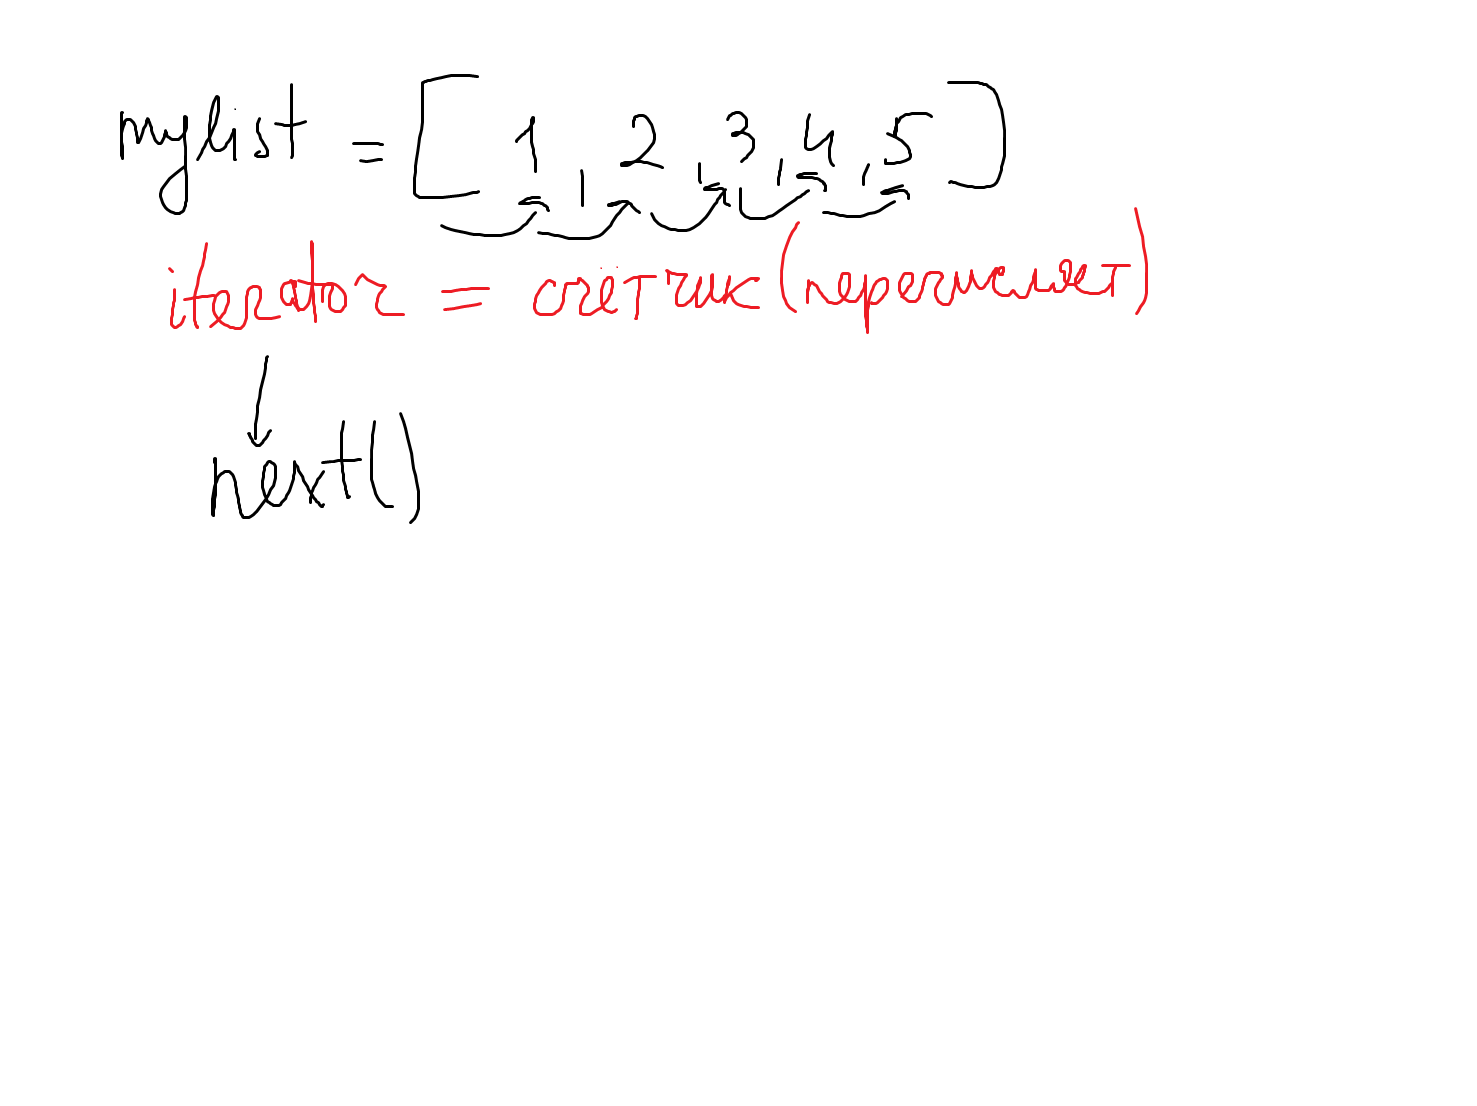 mylist = [1, 2, 3, 4, 5]
iterator = счётчик (перечисляет)
next()